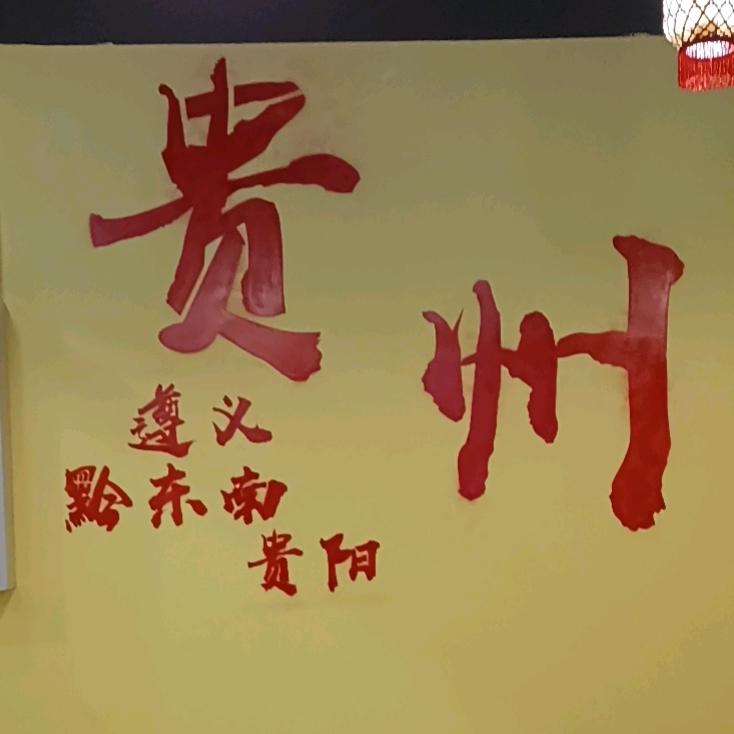 贵州
遵义
黔东南
贵阳